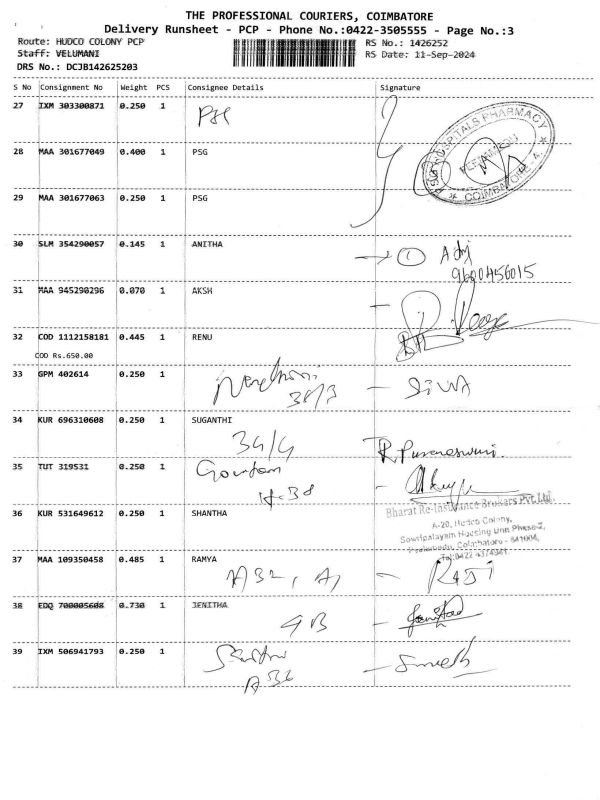 THE PROFESSIONAL COURIERS, COIMBATORE
Delivery Runsheet - PCP - Phone No.:0422-3505555 - Page No.:3
Route: HUDCO COLONY PCP RS No.: 1426252
Staff: VELUMANI RS Date: 11-Sep-2024
DRS No.: DCJB142625203
S No Consignment No Weight PCS Consignee Details Signature
27 IXM 303300871 0.250 1
HOSPITALS PHARMACY
COIMBATORE - 4
28 MAA 301677049 0.400 1 PSG
29 MAA 301677063 0.250 1 PSG
30 SLM 354290057 0.145 1 ANITHA
1
31 MAA 945290296 0.070 1 AKSH
32 COD 1112158181 0.445 1 RENU
COD Rs.650.00
33 GPM 402614 0.250 1
- SIVA
34 KUR 696310608 0.250 1 SUGANTHI
34/4
35 TUT 319531 0.250 1 Goutam
H-38
36 KUR 531649612 0.250 1 SHANTHA
Bharat Re-Insurance Brokers Pvt. Ltd.
A-20, Hudco Colony,
Sowripalayam Housing Unit Phase-2,
Peelamedu, Coimbatore - 641004,
37 MAA 109350458 0.485 1 RAMYA
- RAJI
38 EDQ 700005608 0.730 1 JENITHA
9B
39 IXM 506941793 0.250 1
A36 - Suresh